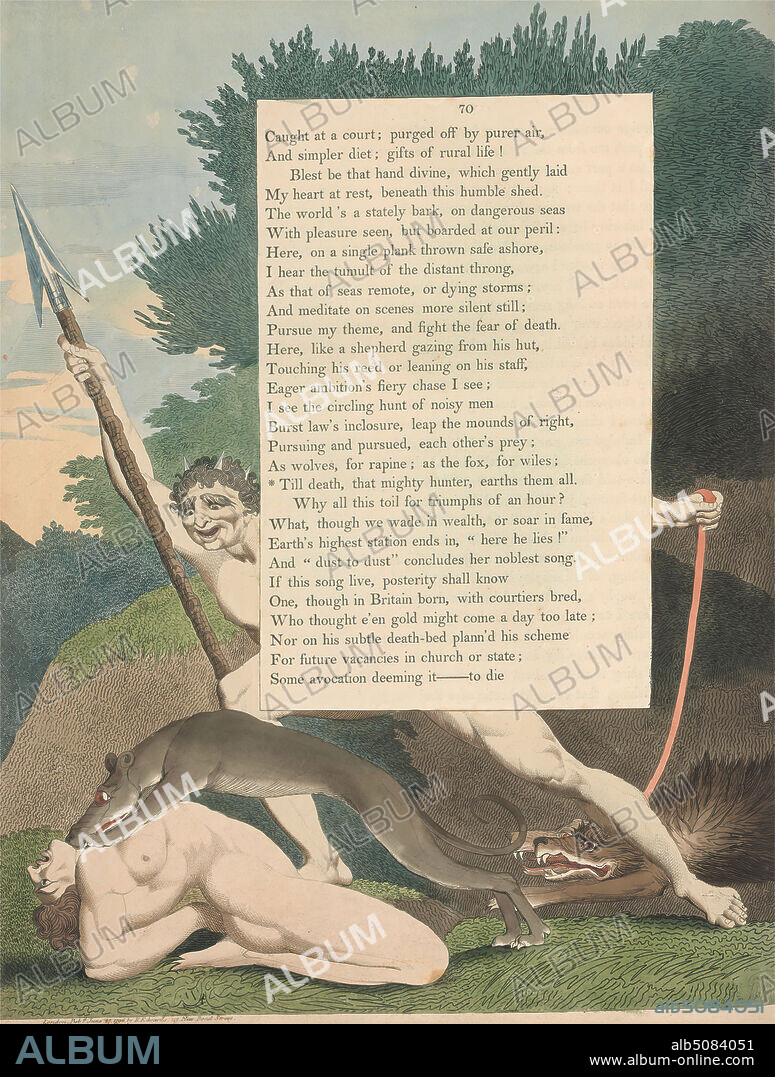 70
Caught at a court; purged off by purer air,
And simpler diet; gifts of rural life!
Blest be that hand divine, which gently laid
My heart at rest, beneath this humble shed.
The world 's a stately bark, on dangerous seas
With pleasure seen, but boarded at our peril:
Here, on a single plank thrown safe ashore,
I hear the tumult of the distant throng,
As that of seas remote, or dying storms;
And meditate on scenes more silent still;
Pursue my theme, and fight the fear of death.
Here, like a shepherd gazing from his hut,
Touching his reed or leaning on his staff,
Eager ambition's fiery chase I see;
I see the circling hunt of noisy men
Burst law's inclosure, leap the mounds of right,
Pursuing and pursued, each other's prey;
As wolves, for rapine; as the fox, for wiles;
* Till death, that mighty hunter, earths them all.
Why all this toil for triumphs of an hour?
What, though we wade in wealth, or soar in fame,
Earth's highest station ends in, “ here he lies!”
And “ dust to dust” concludes her noblest song.
If this song live, posterity shall know
One, though in Britain born, with courtiers bred,
Who thought e'en gold might come a day too late;
Nor on his subtle death-bed plann'd his scheme
For future vacancies in church or state;
Some avocation deeming it——to die
London, Pub. June 27, 1796, by R. Edwards, New Bond Street.
ALBUM
alb5084051
ALBUM
alb5084051
www.album-online.com